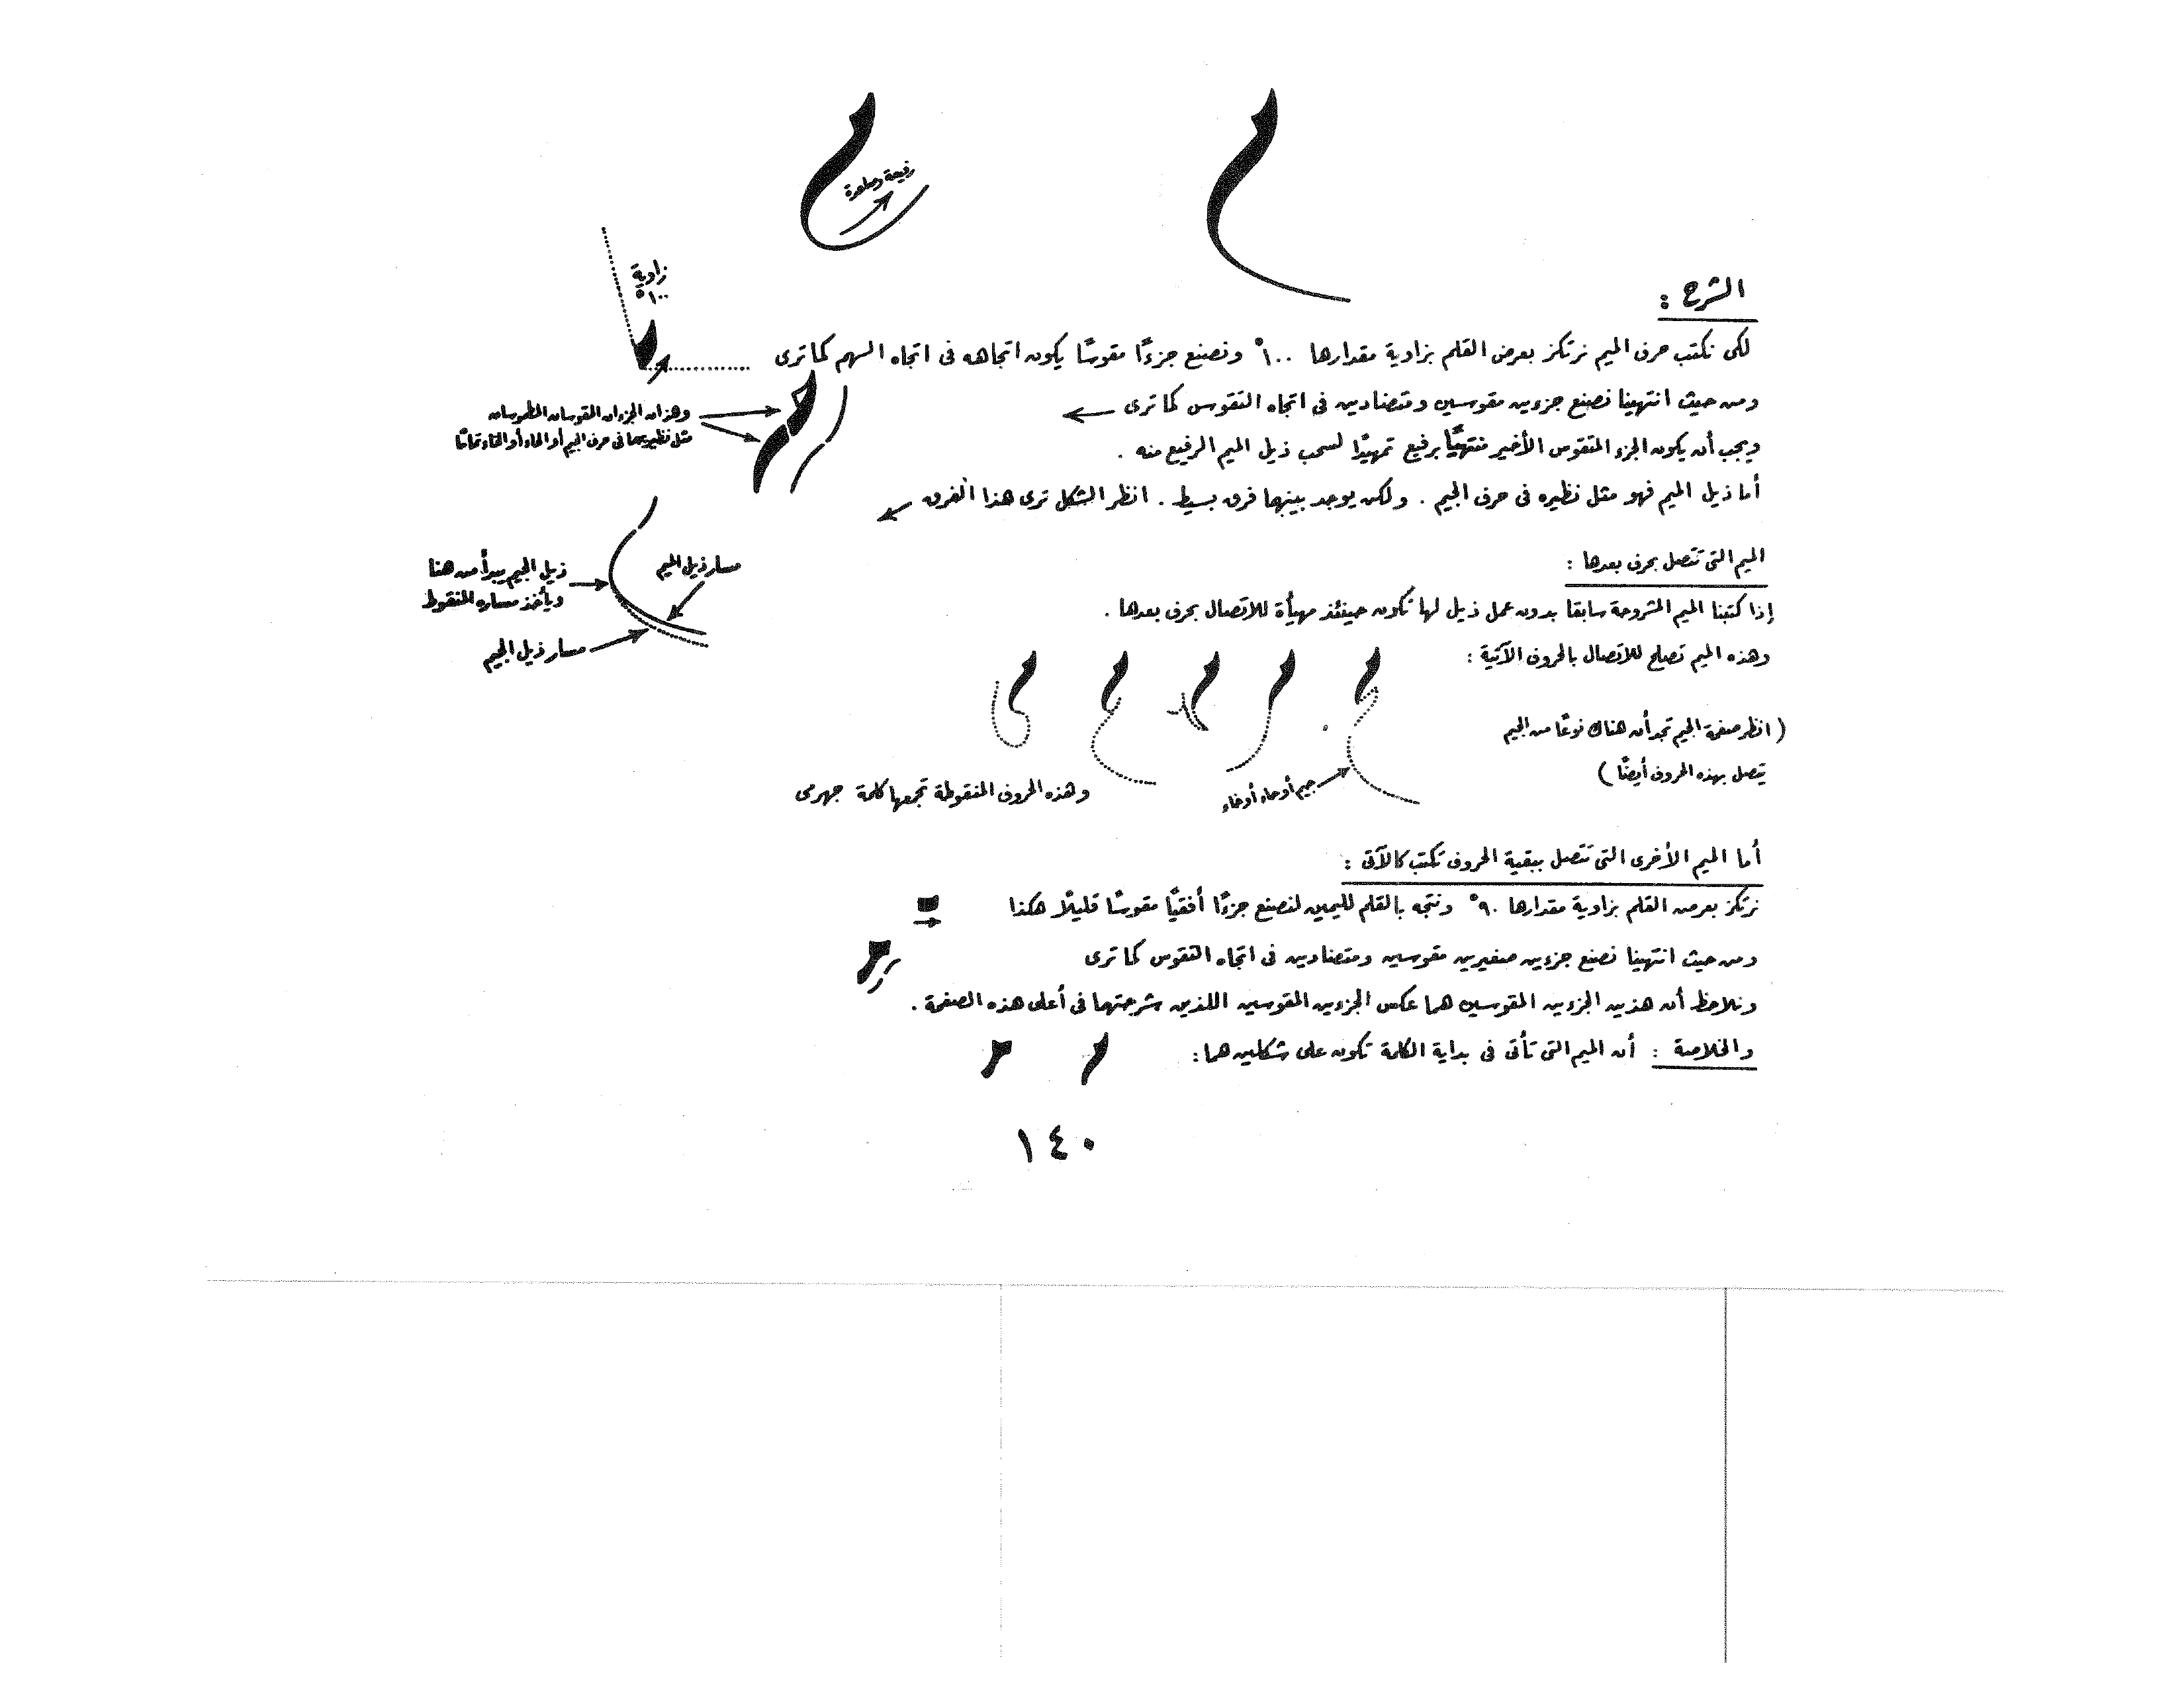 م م
رفيعة وصاعدة
زاوية
١٠٠°
الشرح :
لكى نكتب حرف الميم نرتكز بعرض القلم بزاوية مقدارها ١٠٠° ونصنع جزءًا مقوسًا يكون اتجاهه فى اتجاه السهم كما ترى
ومن حيث انتهينا نصنع جزءين مقوسين ومتضادين فى اتجاه التقوس كما ترى
وهذان الجزءان المقوسان المطموسان
مثل نظيريهما فى حرف الجيم أو الحاء أو الخاء تمامًا
ويجب أن يكون الجزء المتقوس الأخير منتهيًا برفيع تمهيدًا لسحب ذيل الميم الرفيع منه .
أما ذيل الميم فهو مثل نظيره فى حرف الجيم . ولكن يوجد بينهما فرق بسيط . انظر الشكل ترى هذا الفرق
مسار ذيل الميم
ذيل الجيم يبدأ من هنا
ويأخذ مساره المنقوط
مسار ذيل الجيم
الميم التى تتصل بحرف بعدها :
إذا كتبنا الميم المشروحة سابقا بدون عمل ذيل لها تكون حينئذ مهيأة للاتصال بحرف بعدها .
وهذه الميم تصلح للاتصال بالحروف الآتية :
( انظر صفحة الجيم تجد أن هناك نوعًا من الجيم
يتصل بهذه الحروف أيضًا )
جيم أو حاء أو خاء
وهذه الحروف المنقوطة تجمعها كلمة جهرمى
أما الميم الأخرى التى تتصل ببقية الحروف تكتب كالآتى :
نرتكز بعرض القلم بزاوية مقدارها ٩٠° ونتجه بالقلم لليمين لنصنع جزءًا أفقيًا مقوسًا قليلًا هكذا
ومن حيث انتهينا نصنع جزءين صغيرين مقوسين ومتضادين فى اتجاه التقوس كما ترى
ونلاحظ أن هذين الجزءين المقوسين هما عكس الجزءين المقوسين اللذين شرحتهما فى أعلى هذه الصفحة .
والخلاصة : أن الميم التى تأتى فى بداية الكلمة تكون على شكلين هما :
١٤٠